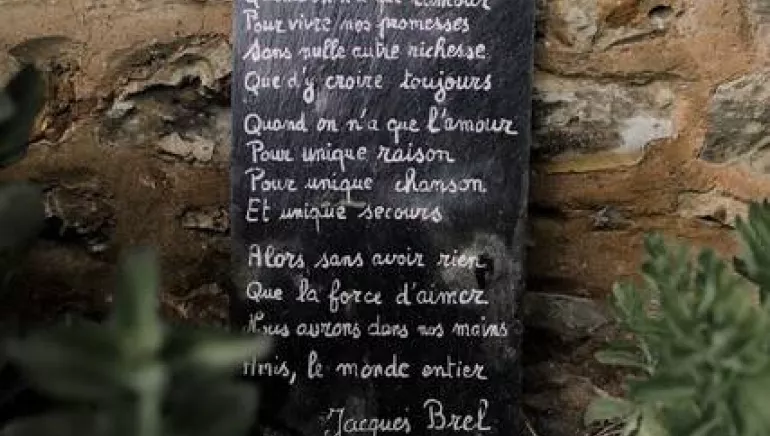 Quand on n'a que l'amour
Pour vivre nos promesses
Sans nulle autre richesse
Que d'y croire toujours
Quand on n'a que l'amour
Pour unique raison
Pour unique chanson
Et unique secours
Alors, sans avoir rien
Que la force d'aimer
Nous aurons dans nos mains
Amis, le monde entier
Jacques Brel